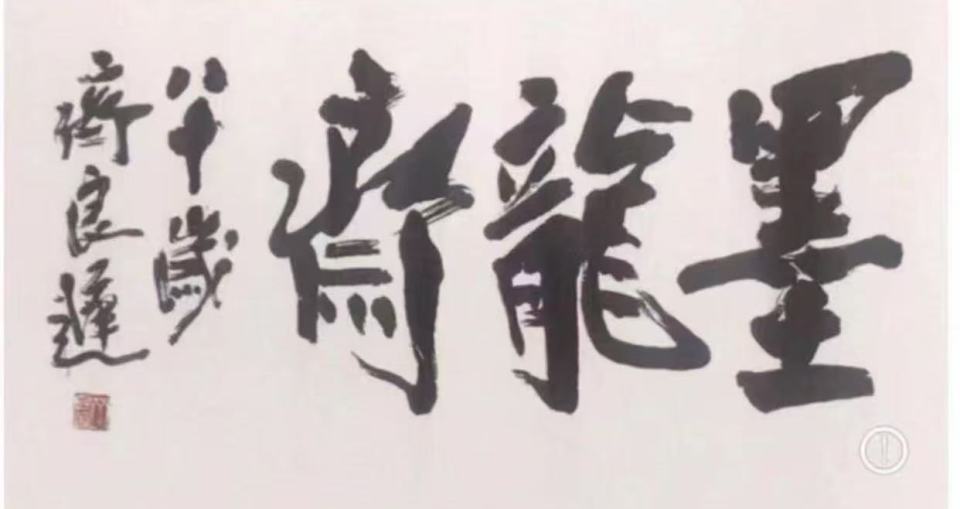 墨龍齋
八十歲
齊良遲